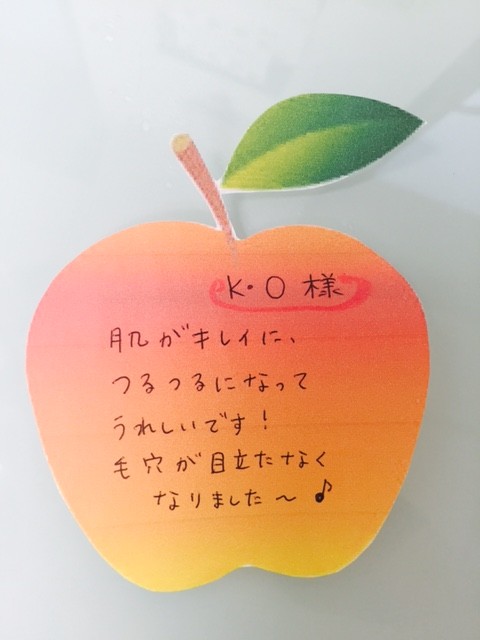 K・O 様
肌がキレイに、
つるつるになって
うれしいです!
毛穴が目立たなく
なりました～♪